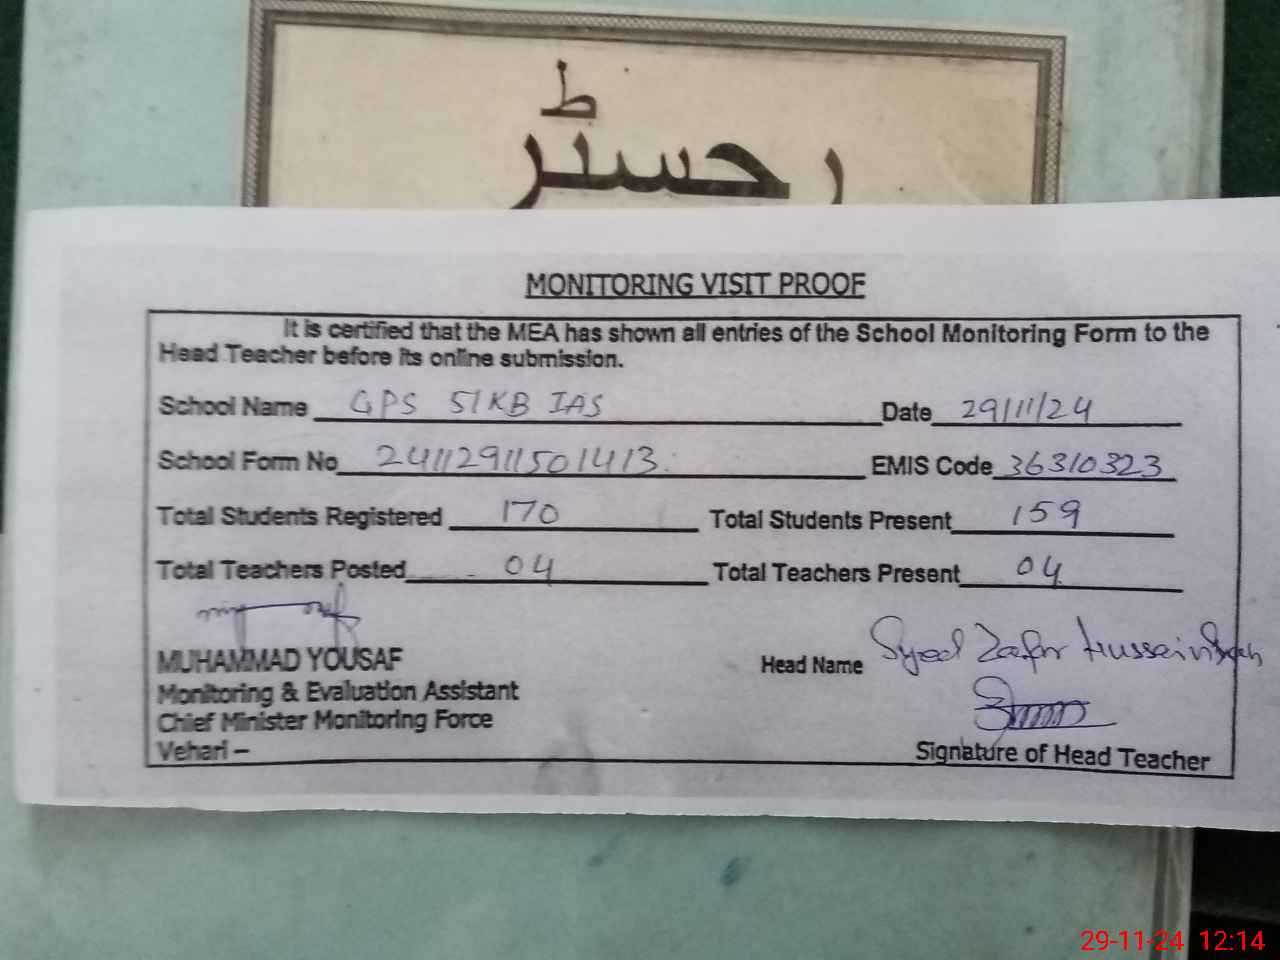 رجسٹر
MONITORING VISIT PROOF
It is certified that the MEA has shown all entries of the School Monitoring Form to the
Head Teacher before its online submission.
School Name GPS 51KB IAS Date 29/11/24
School Form No 24112911501413 EMIS Code 36310323
Total Students Registered 170 Total Students Present 159
Total Teachers Posted 04 Total Teachers Present 04
MUHAMMAD YOUSAF Head Name Syed Zafar Hussain Shah
Monitoring & Evaluation Assistant
Chief Minister Monitoring Force
Vehari – Signature of Head Teacher
29-11-24 12:14